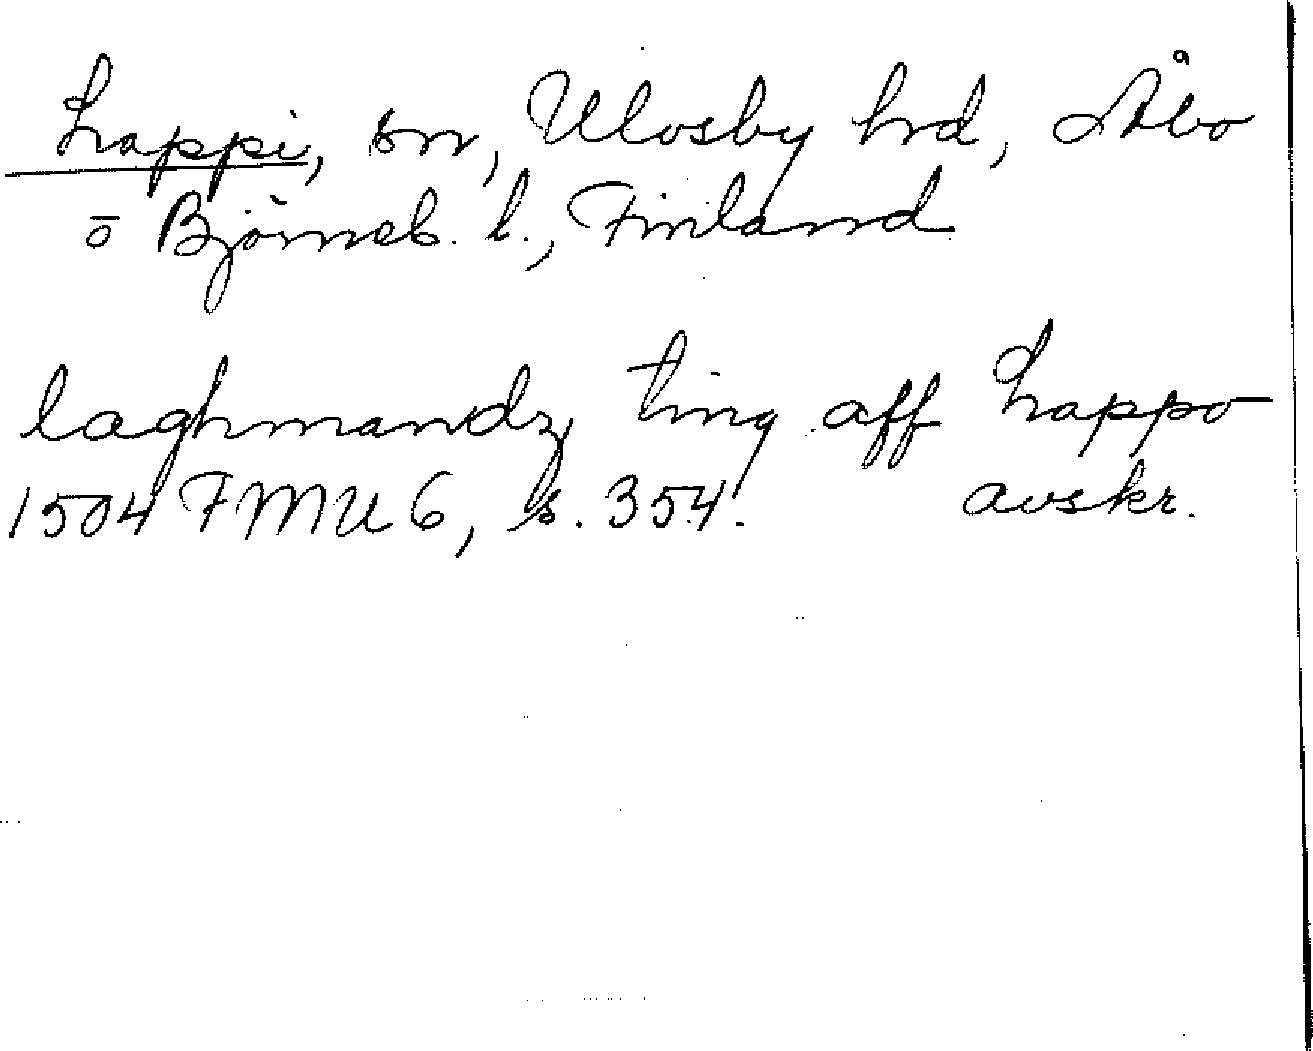 Lappi, sn, Ulvsby hrd, Åbo
o Björneb. l., Finland
laghmandz ting aff Lappo
1504 FMU 6, s. 354. avskr.